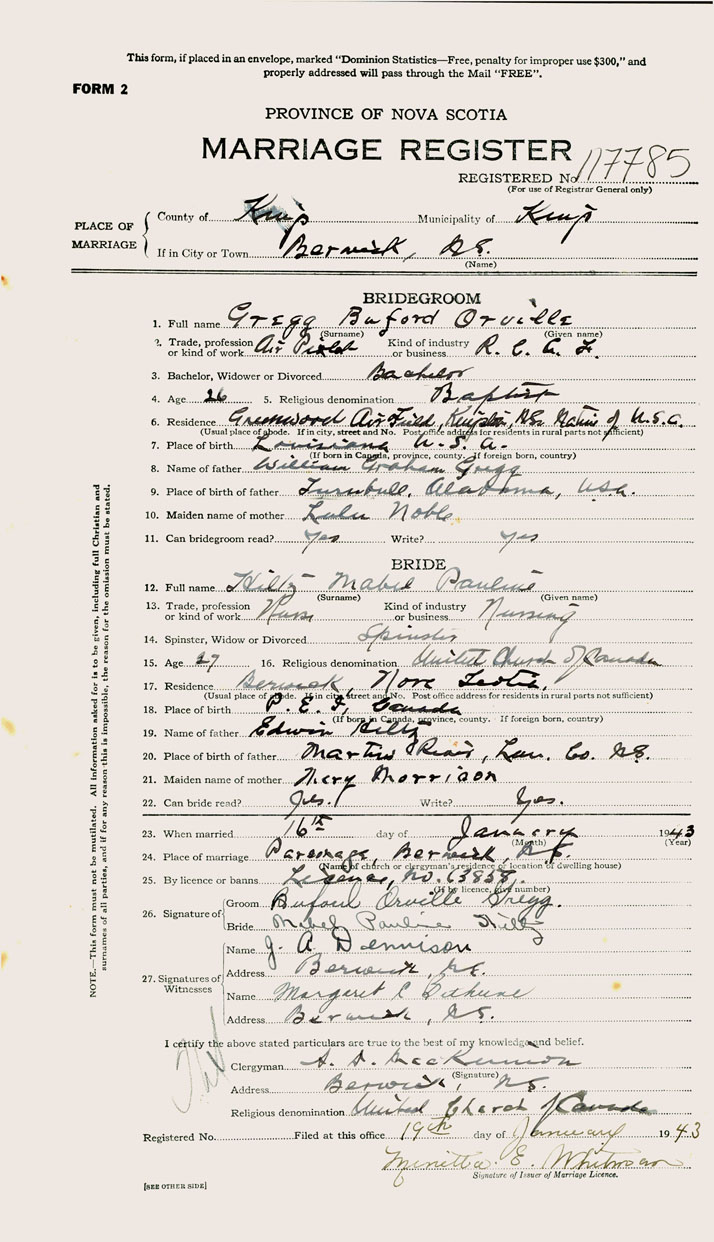 This form, if placed in an envelope, marked "Dominion Statistics—Free, penalty for improper use $300," and
properly addressed will pass through the Mail "FREE".
FORM 2
PROVINCE OF NOVA SCOTIA
MARRIAGE REGISTER
REGISTERED No. 117785
(For use of Registrar General only)
PLACE OF MARRIAGE
County of Kings Municipality of Kings
If in City or Town Berwick, N.S.
(Name)
BRIDEGROOM
1. Full name Gregg Buford Orville
(Surname) (Given name)
2. Trade, profession or kind of work Air Pilot Kind of industry or business R. C. A. F.
3. Bachelor, Widower or Divorced Bachelor
4. Age 26 5. Religious denomination Baptist
6. Residence Greenwood Air Field, Kingston, N.S. Native of U.S.A.
(Usual place of abode. If in city, street and No. Post office address for residents in rural parts not sufficient)
7. Place of birth Louisiana U.S.A.
(If born in Canada, province, county. If foreign born, country)
8. Name of father William Graham Gregg
9. Place of birth of father Turnbull, Alabama, USA.
10. Maiden name of mother Lula Noble
11. Can bridegroom read? Yes Write? Yes
BRIDE
12. Full name Hiltz Mabel Pauline
(Surname) (Given name)
13. Trade, profession or kind of work Nurse Kind of industry or business Nursing
14. Spinster, Widow or Divorced Spinster
15. Age 27 16. Religious denomination United Church of Canada
17. Residence Berwick, Nova Scotia,
(Usual place of abode. If in city, street and No. Post office address for residents in rural parts not sufficient)
18. Place of birth P. E. I., Canada
(If born in Canada, province, county. If foreign born, country)
19. Name of father Edwin Hiltz
20. Place of birth of father Martins River, Lun. Co. N.S.
21. Maiden name of mother Mary Morrison
22. Can bride read? Yes. Write? Yes.
23. When married 16th day of January 1943
(Month) (Year)
24. Place of marriage Parsonage, Berwick, N.S.
(Name of church or clergyman's residence or location of dwelling house)
25. By licence or banns License, No. 63858
(If by licence, give number)
26. Signature of
Groom Buford Orville Gregg.
Bride Mabel Pauline Hiltz
27. Signatures of Witnesses
Name J. A. Dennison
Address Berwick, N.S.
Name Margaret C Bethune
Address Berwick, N.S.
I certify the above stated particulars are true to the best of my knowledge and belief.
Clergyman A. D. MacKinnon
(Signature)
Address Berwick, N.S.
Religious denomination United Church of Canada
Registered No. Filed at this office 19th day of January 1943
E. Whitman
Signature of Issuer of Marriage Licence.
[SEE OTHER SIDE]
NOTE.—This form must not be mutilated. All information asked for is to be given, including full Christian and
surnames of all parties, and if for any reason this is impossible, the reason for the omission must be stated.